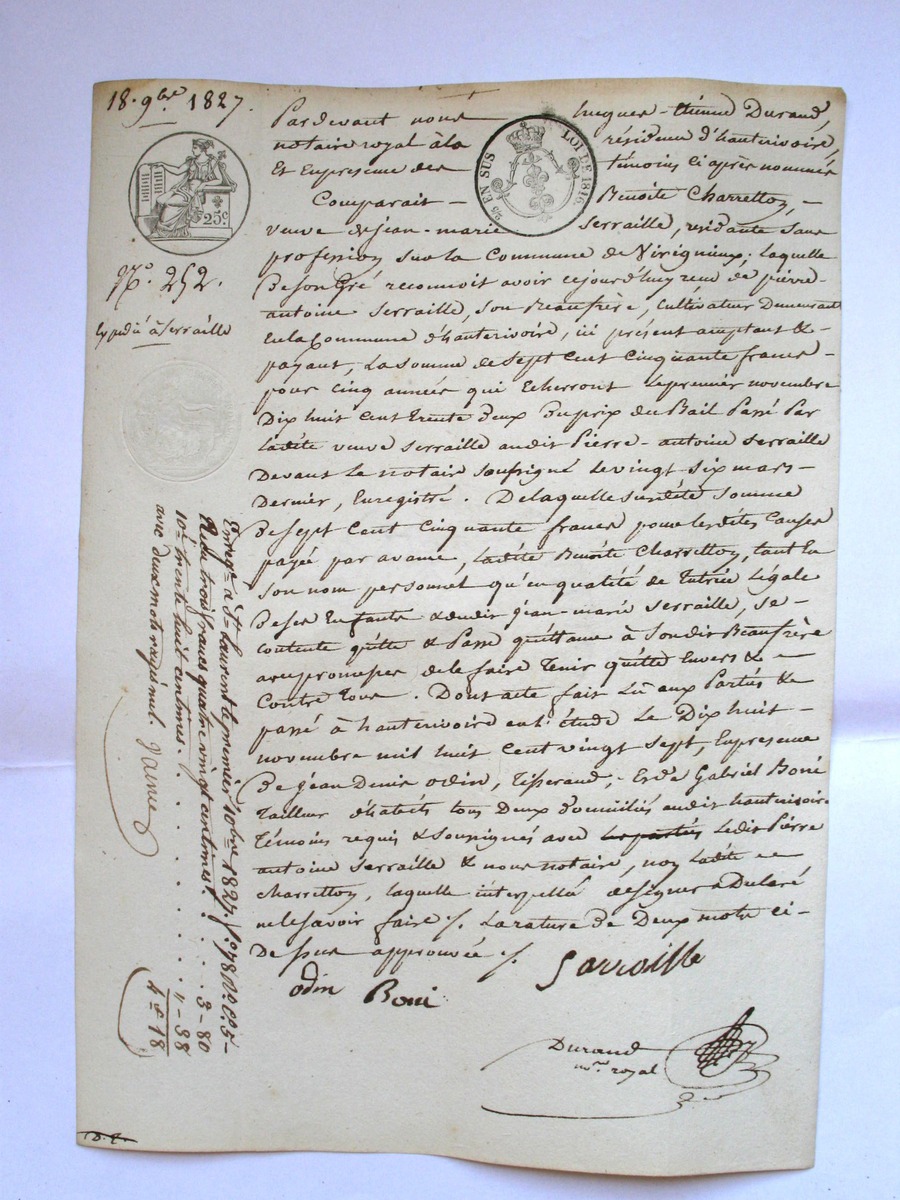 18. 9bre 1827.
25c.
2/5 EN SUS LOI DE 1816.
N.o 252.
Expédié à Serraille
Pardevant nous hugues-étienne Durand,
notaire royal à la résidence d'hauterivoire,
Et En présence des témoins ci après nommés
Comparait - Benoite Charretton,
veuve de jean-marie Serraille, résidante sans
profession sur la Commune de Virégnieux; laquelle
De son Gré reconnoit avoir cejourd'huy reçu de pierre-
antoine Serraille, son Beaufrère, Cultivateur Demeurant
En la Commune d'hauterivoire, ici présent acceptant &
payant, La somme de Sept Cent Cinquante francs -
pour Cinq années qui Echerront le premier novembre
Dix huit Cent trente Deux Du prix du Bail Passé Par
Ladite veuve Serraille audit Pierre-antoine Serraille
Devant le notaire soussigné le vingt six mars -
Dernier, Enregistré. De laquelle susdite somme
De Sept Cent Cinquante francs pour lesdites Causes
payée par avance, Ladite Benoite Charretton, tant En
Son nom personnel qu'en qualité de Tutrice légale
De ses Enfants & dudit jean-marie Serraille, se
Contente quitte & Passe quittance à Son dit Beaufrère
avec promesse de le faire Tenir quitte Envers &
Contre Tous. Dont acte fait Lû aux Parties &
passé à hauterivoire en l'étude Le Dix huit -
novembre mil huit Cent vingt Sept, En présence
De jean Denis odin, Tisserand, - Et de Gabriel Boni
Tailleur d'habits tous Deux Domiciliés audit hauterivoire
Témoins requis & Soussignés avec les parties ledit Pierre
antoine Serraille & nous notaire, non Ladite
Charretton, laquelle interpellée de signer a Déclaré
ne le savoir faire ./. La rature de Deux mots ci-
Dessus approuvée ./.
Serraille
odin Boni
Durand
nore. royal
Enregé. à St. Laurent le premier 10bre 1827. f.o 78 R.o C. 5 -
Reçu trois francs quatre vingt centimes. . . . 3 - 80
10e. trente huit centimes. . . . . . " - 38
4f 18
avec deux mots rayés nul.